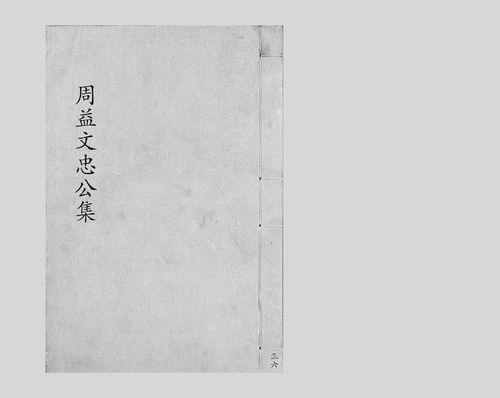 周益文忠公集
三六